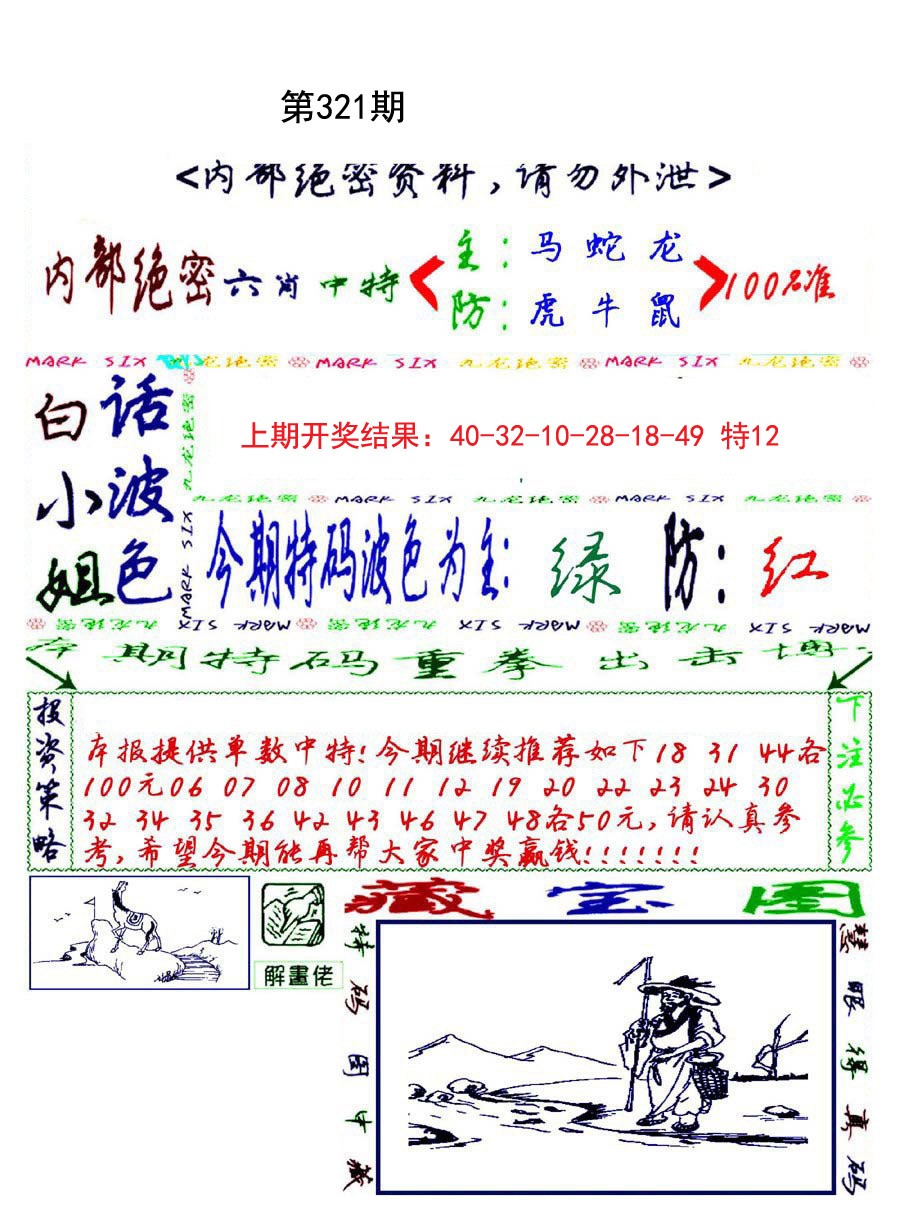 第321期
<内部绝密资料，请勿外泄>
内部绝密六肖中特
主：马 蛇 龙
防：虎 牛 鼠
100%准
MARK SIX 九龙绝密 MARK SIX 九龙绝密 MARK SIX 九龙绝密
白小姐
话波色
九龙绝密 MARK SIX
上期开奖结果：40-32-10-28-18-49 特12
九龙绝密 MARK SIX 九龙绝密 MARK SIX 九龙绝密
今期特码波色为主：绿 防：红
九龙绝密 MARK SIX 九龙绝密 MARK SIX 九龙绝密 MARK SIX
期特码重拳出击
投资策略
本报提供单数中特!今期继续推荐如下18 31 44各
100元06 07 08 10 11 12 19 20 22 23 24 30
32 34 35 36 42 43 46 47 48各50元,请认真参
考,希望今期能再帮大家中奖赢钱!!!!!!!
下注必参
解畫佬
藏宝图
特码图中藏
慧眼得真码